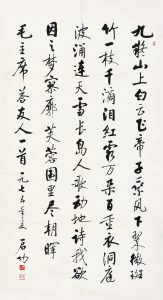 九嶷山上白云飞帝子乘风下翠微斑
竹一枝千滴泪红霞万朵百重衣洞庭
波涌连天雪长岛人歌动地诗我欲
因之梦寥廓芙蓉国里尽朝晖
毛主席答友人一首 一九七